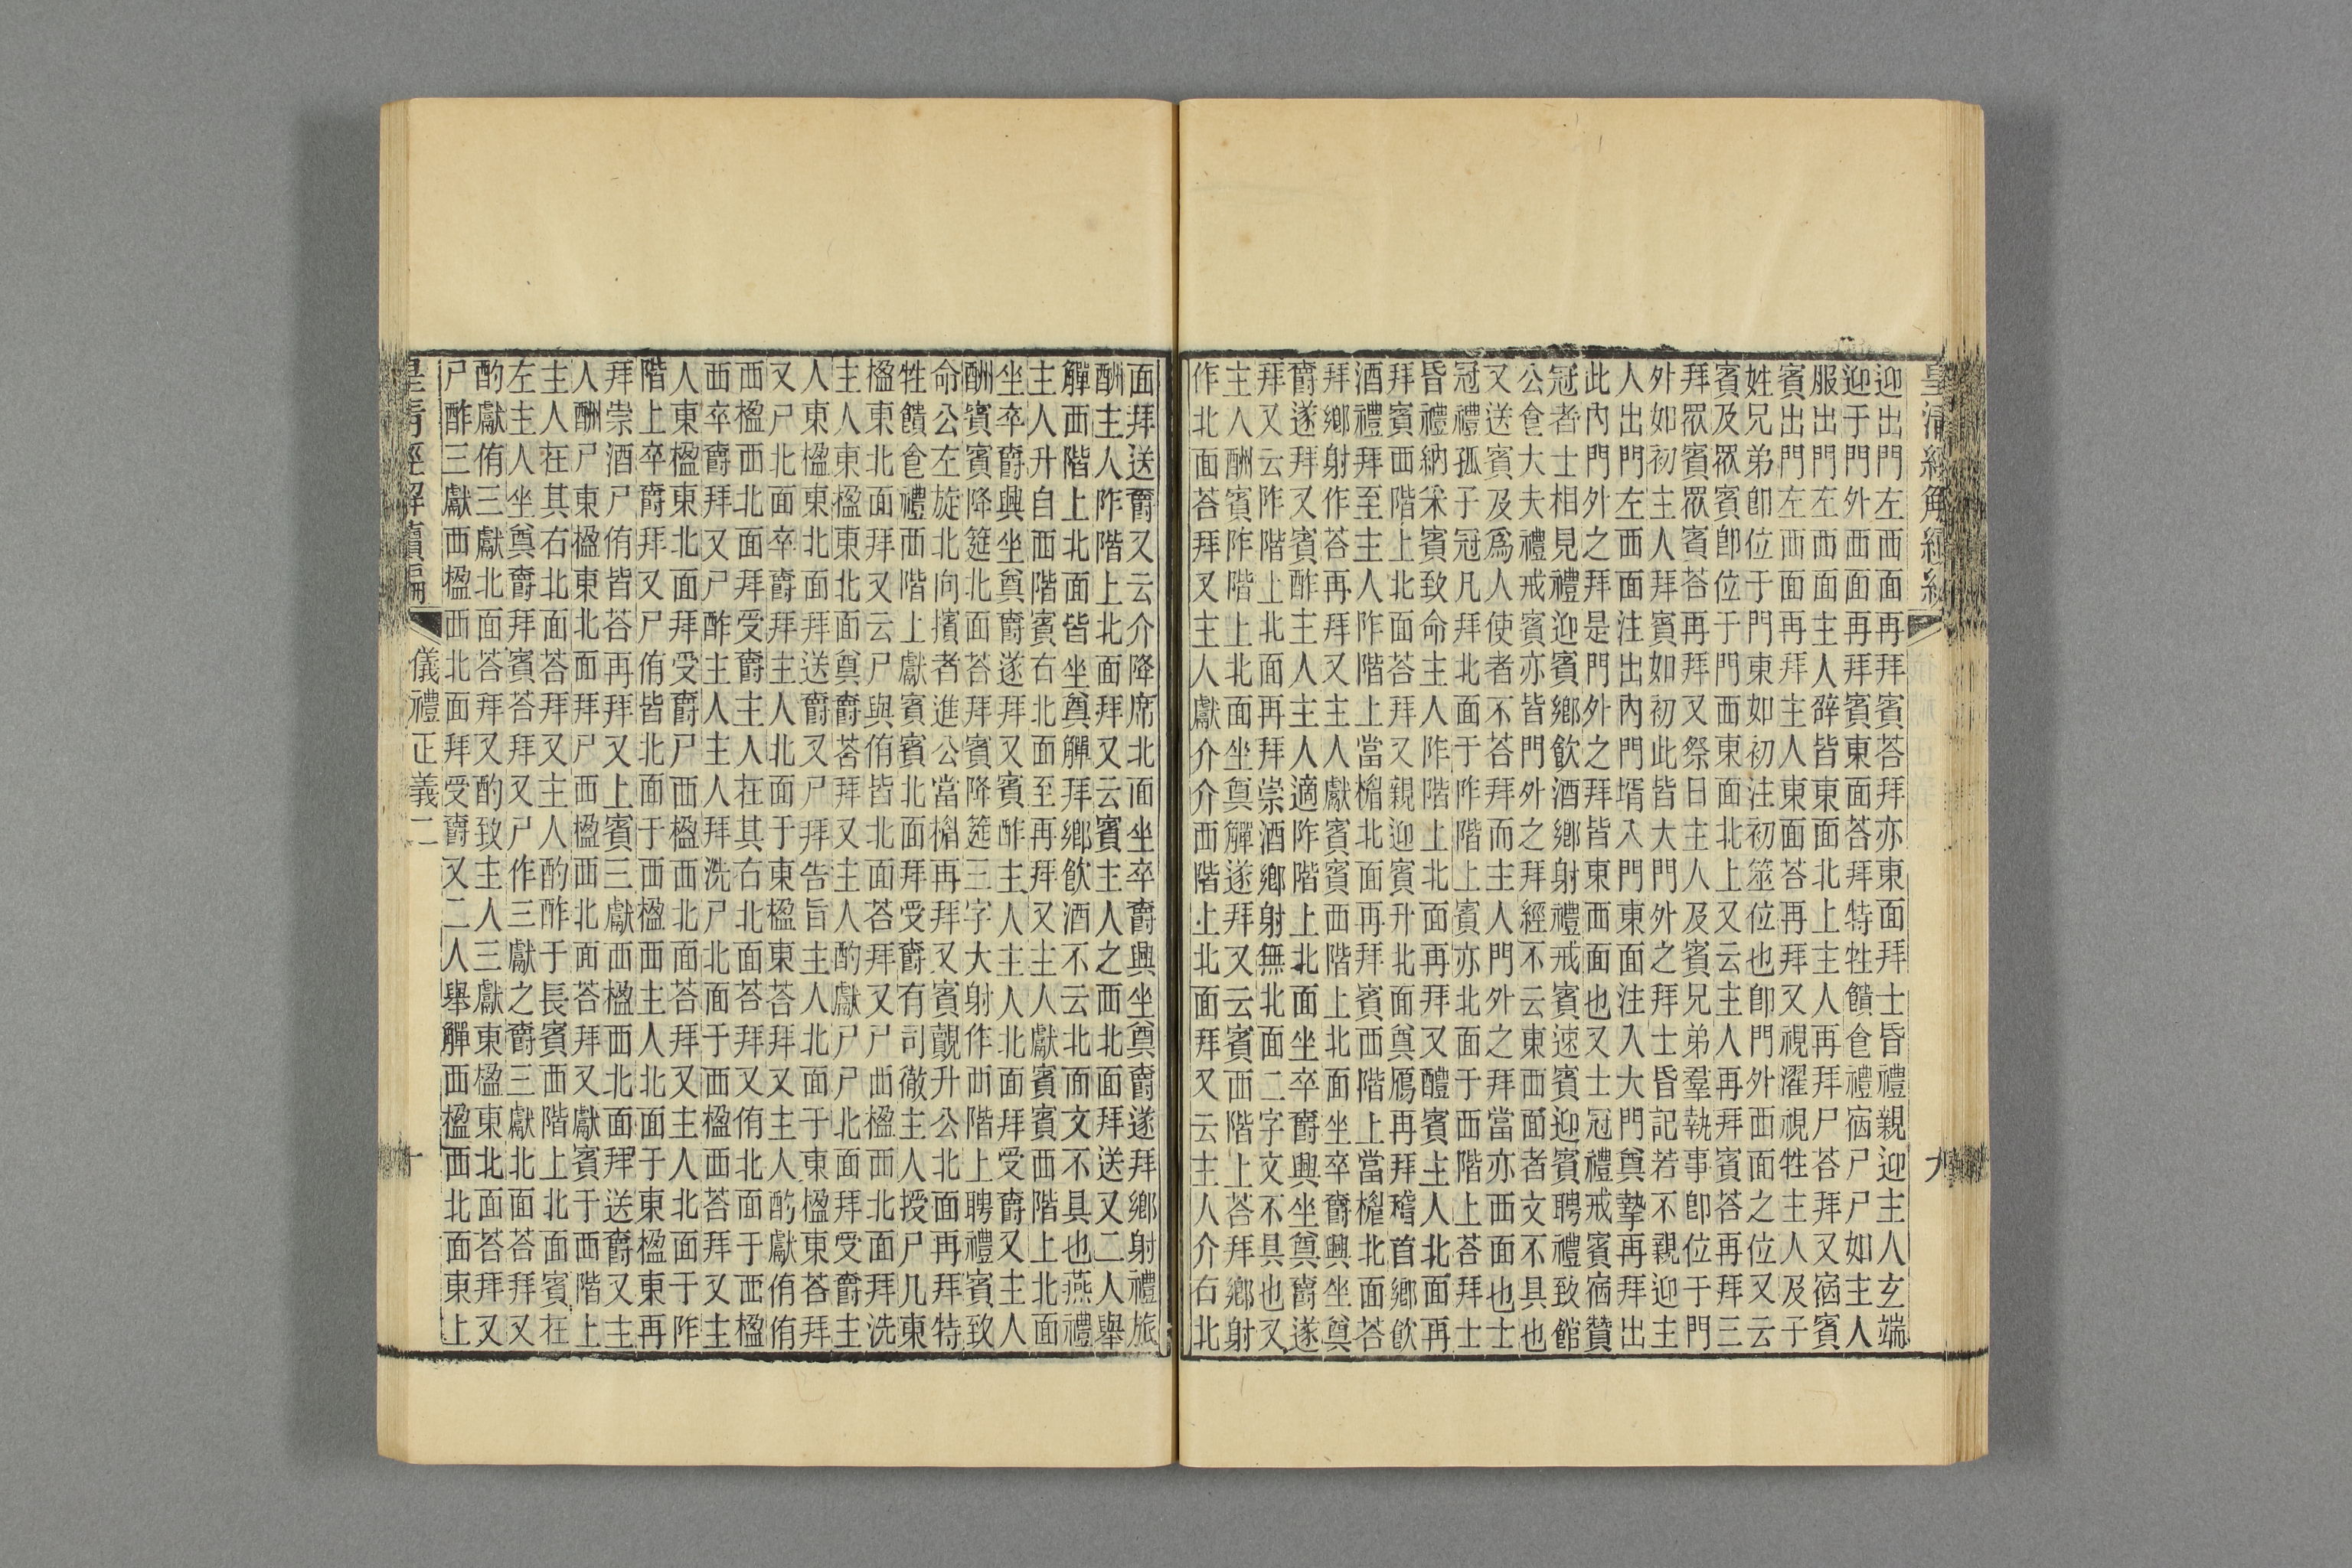 迎出門左西面再拜賓荅拜亦東面拜士昏禮親迎主人玄端
迎于門外西面再拜賓東面荅拜特牲饋食禮宿尸尸如主人
服出門左西面主人辟皆東面北上主人再拜尸荅拜又宿賓
賓出門左西面再拜主人東面荅再拜又視濯視牲主人及子
姓兄弟卽位于門東如初注初筮位也卽門外西面之位又云
賓及眾賓卽位于門西東面北上又云主人再拜賓荅再拜三
拜眾賓眾賓荅再拜又祭日主人及賓兄弟羣執事卽位于門
外如初主人拜賓如初此皆大門外之拜士昏記若不親迎主
人出門左西面注出內門壻入門東面注入大門奠摯再拜出
此內門外之拜是門外之拜皆東西面也又士冠禮戒賓宿贊
冠者士相見禮迎賓鄉飮酒鄉射禮戒賓速賓迎賓聘禮致館
公食大夫禮戒賓亦皆門外之拜經不云東西面者文不具也
又送賓及爲人使者不荅拜而主人門外之拜當亦西面也士
冠禮孤子冠凡拜北面于阼階上賓亦北面于西階上荅拜士
昏禮納采賓致命主人阼階上北面再拜又醴賓主人北面再
拜賓西階上北面荅拜又親迎賓升北面奠鴈再拜稽首鄉飮
酒禮拜至主人阼階上當楣北面再拜賓西階上當楣北面荅
拜鄉射作荅再拜又主人獻賓賓西階上北面坐卒爵興坐奠
爵遂拜又賓酢主人主人適阼階上北面坐卒爵興坐奠爵遂
拜又云阼階上北面再拜崇酒鄉射無北面二字文不具也又
主人酬賓阼階上北面坐奠觶遂拜又云賓西階上荅拜鄉射
作北面荅拜又主人獻介介西階上北面拜又云主人介右北
面拜送爵又云介降席北面坐卒爵興坐奠爵遂拜鄉射禮旅
酬主人阼階上北面拜又云賓主人之西北面拜送又二人舉
觶西階上北面皆坐奠觶拜鄉飮酒不云北面文不具也燕禮
主人升自西階賓右北面至再拜又主人獻賓賓西階上北面
坐卒爵興坐奠爵遂拜又賓酢主人主人北面拜受爵又主人
酬賓賓降筵北面荅拜賓降筵三字大射作西階上聘禮賓致
命公左旋北向擯者進公當楣再拜又賓覿升公北面再拜特
牲饋食禮西階上獻賓賓北面拜受爵有司徹主人授尸几東
楹東北面拜又云尸與侑皆北面荅拜又尸西楹西北面拜洗
主人東楹東北面奠爵荅拜又主人酌獻尸尸北面拜受爵主
人東楹東北面拜送爵又尸拜告旨主人北面于東楹東荅拜
又尸北面卒爵拜主人北面于東楹東荅拜又主人酌獻侑侑
西楹西北面拜受爵主人在其右北面荅拜又侑北面于西楹
西卒爵拜又尸酢主人主人拜洗尸北面于西楹西荅拜又主
人東楹東北面拜受爵尸西楹西北面荅拜又主人北面于阼
階上卒爵拜又尸侑皆北面于西楹西主人北面于東楹東再
拜崇酒尸侑皆荅再拜又上賓三獻西楹西北面拜送爵又主
人酬尸東楹東北面拜尸西楹西北面荅拜又獻賓于西階上
主人在其右北面荅拜又主人酌酢于長賓西階上北面賓在
左主人坐奠爵拜賓荅拜又尸作三獻之爵三獻北面荅拜又
酌獻侑三獻北面荅拜又酌致主人三獻東楹東北面荅拜又
尸酢三獻西楹西北面拜受爵又二人舉觶西楹西北面東上
儀禮正義二